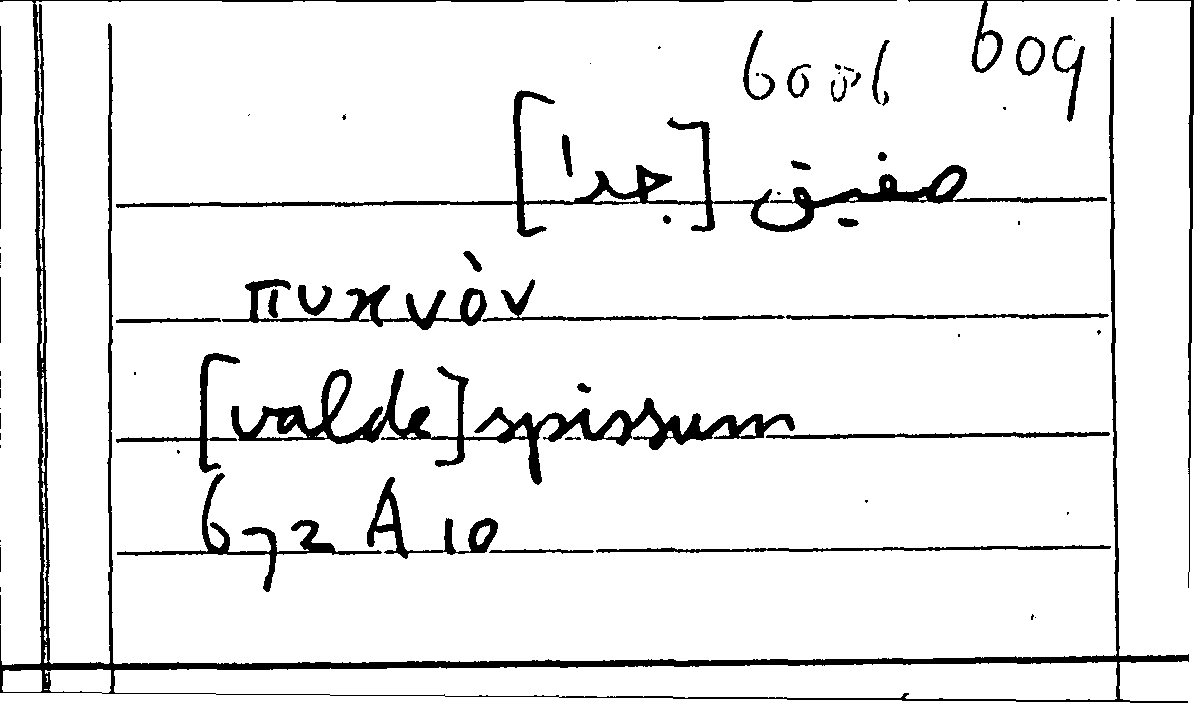 609
صفيق [جدا]
πυκνὸν
[valde] spissum
672 A 10